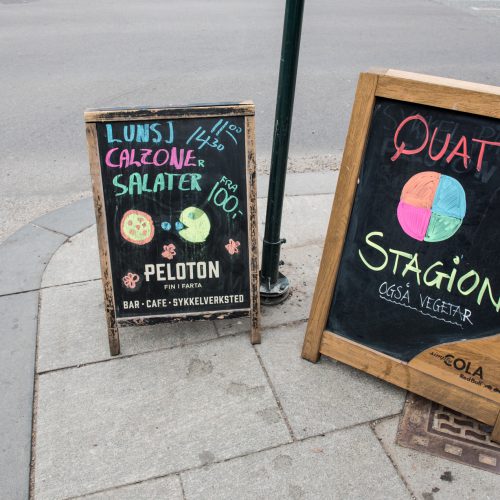 LUNSJ 11:00
14:30
CALZONER
SALATER FRA
100,-
PELOTON
FIN I FARTA
BAR · CAFE · SYKKELVERKSTED
QUAT
STAGION
OGSÅ VEGETAR
COLA